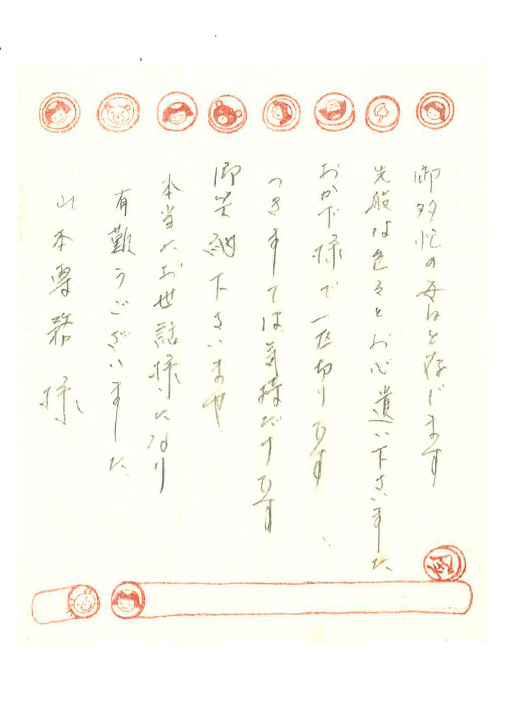 御多忙の毎日と存じます
先般は色々とお心遣い下さいました
おかげ様で一段切りです
つきましては気持だけです
御笑納下さいませ
本当にお世話様になり
有難うございました
山本専務様